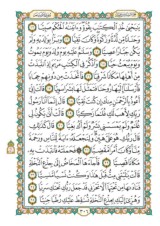 يَٰيَحۡيَىٰ خُذِ ٱلۡكِتَٰبَ بِقُوَّةٖۖ وَءَاتَيۡنَٰهُ ٱلۡحُكۡمَ صَبِيّٗا ١٢
وَحَنَانٗا مِّن لَّدُنَّا وَزَكَوٰةٗۖ وَكَانَ تَقِيّٗا ١٣ وَبَرَّۢا بِوَٰلِدَيۡهِ وَلَمۡ
يَكُن جَبَّارًا عَصِيّٗا ١٤ وَسَلَٰمٌ عَلَيۡهِ يَوۡمَ وُلِدَ وَيَوۡمَ يَمُوتُ
وَيَوۡمَ يُبۡعَثُ حَيّٗا ١٥ وَٱذۡكُرۡ فِي ٱلۡكِتَٰبِ مَرۡيَمَ إِذِ ٱنتَبَذَتۡ
مِنۡ أَهۡلِهَا مَكَانٗا شَرۡقِيّٗا ١٦ فَٱتَّخَذَتۡ مِن دُونِهِمۡ حِجَابٗا
فَأَرۡسَلۡنَآ إِلَيۡهَا رُوحَنَا فَتَمَثَّلَ لَهَا بَشَرٗا سَوِيّٗا ١٧ قَالَتۡ إِنِّيٓ
أَعُوذُ بِٱلرَّحۡمَٰنِ مِنكَ إِن كُنتَ تَقِيّٗا ١٨ قَالَ إِنَّمَآ أَنَا۠ رَسُولُ
رَبِّكِ لِأَهَبَ لَكِ غُلَٰمٗا زَكِيّٗا ١٩ قَالَتۡ أَنَّىٰ يَكُونُ لِي
غُلَٰمٞ وَلَمۡ يَمۡسَسۡنِي بَشَرٞ وَلَمۡ أَكُ بَغِيّٗا ٢٠ قَالَ كَذَٰلِكِ
قَالَ رَبُّكِ هُوَ عَلَيَّ هَيِّنٞۖ وَلِنَجۡعَلَهُۥٓ ءَايَةٗ لِّلنَّاسِ وَرَحۡمَةٗ مِّنَّاۚ
وَكَانَ أَمۡرٗا مَّقۡضِيّٗا ٢١ ۞ فَحَمَلَتۡهُ فَٱنتَبَذَتۡ بِهِۦ
مَكَانٗا قَصِيّٗا ٢٢ فَأَجَآءَهَا ٱلۡمَخَاضُ إِلَىٰ جِذۡعِ ٱلنَّخۡلَةِ
قَالَتۡ يَٰلَيۡتَنِي مِتُّ قَبۡلَ هَٰذَا وَكُنتُ نَسۡيٗا مَّنسِيّٗا ٢٣
فَنَادَىٰهَا مِن تَحۡتِهَآ أَلَّا تَحۡزَنِي قَدۡ جَعَلَ رَبُّكِ تَحۡتَكِ سَرِيّٗا ٢٤
وَهُزِّيٓ إِلَيۡكِ بِجِذۡعِ ٱلنَّخۡلَةِ تُسَٰقِطۡ عَلَيۡكِ رُطَبٗا جَنِيّٗا ٢٥
٣٠٦